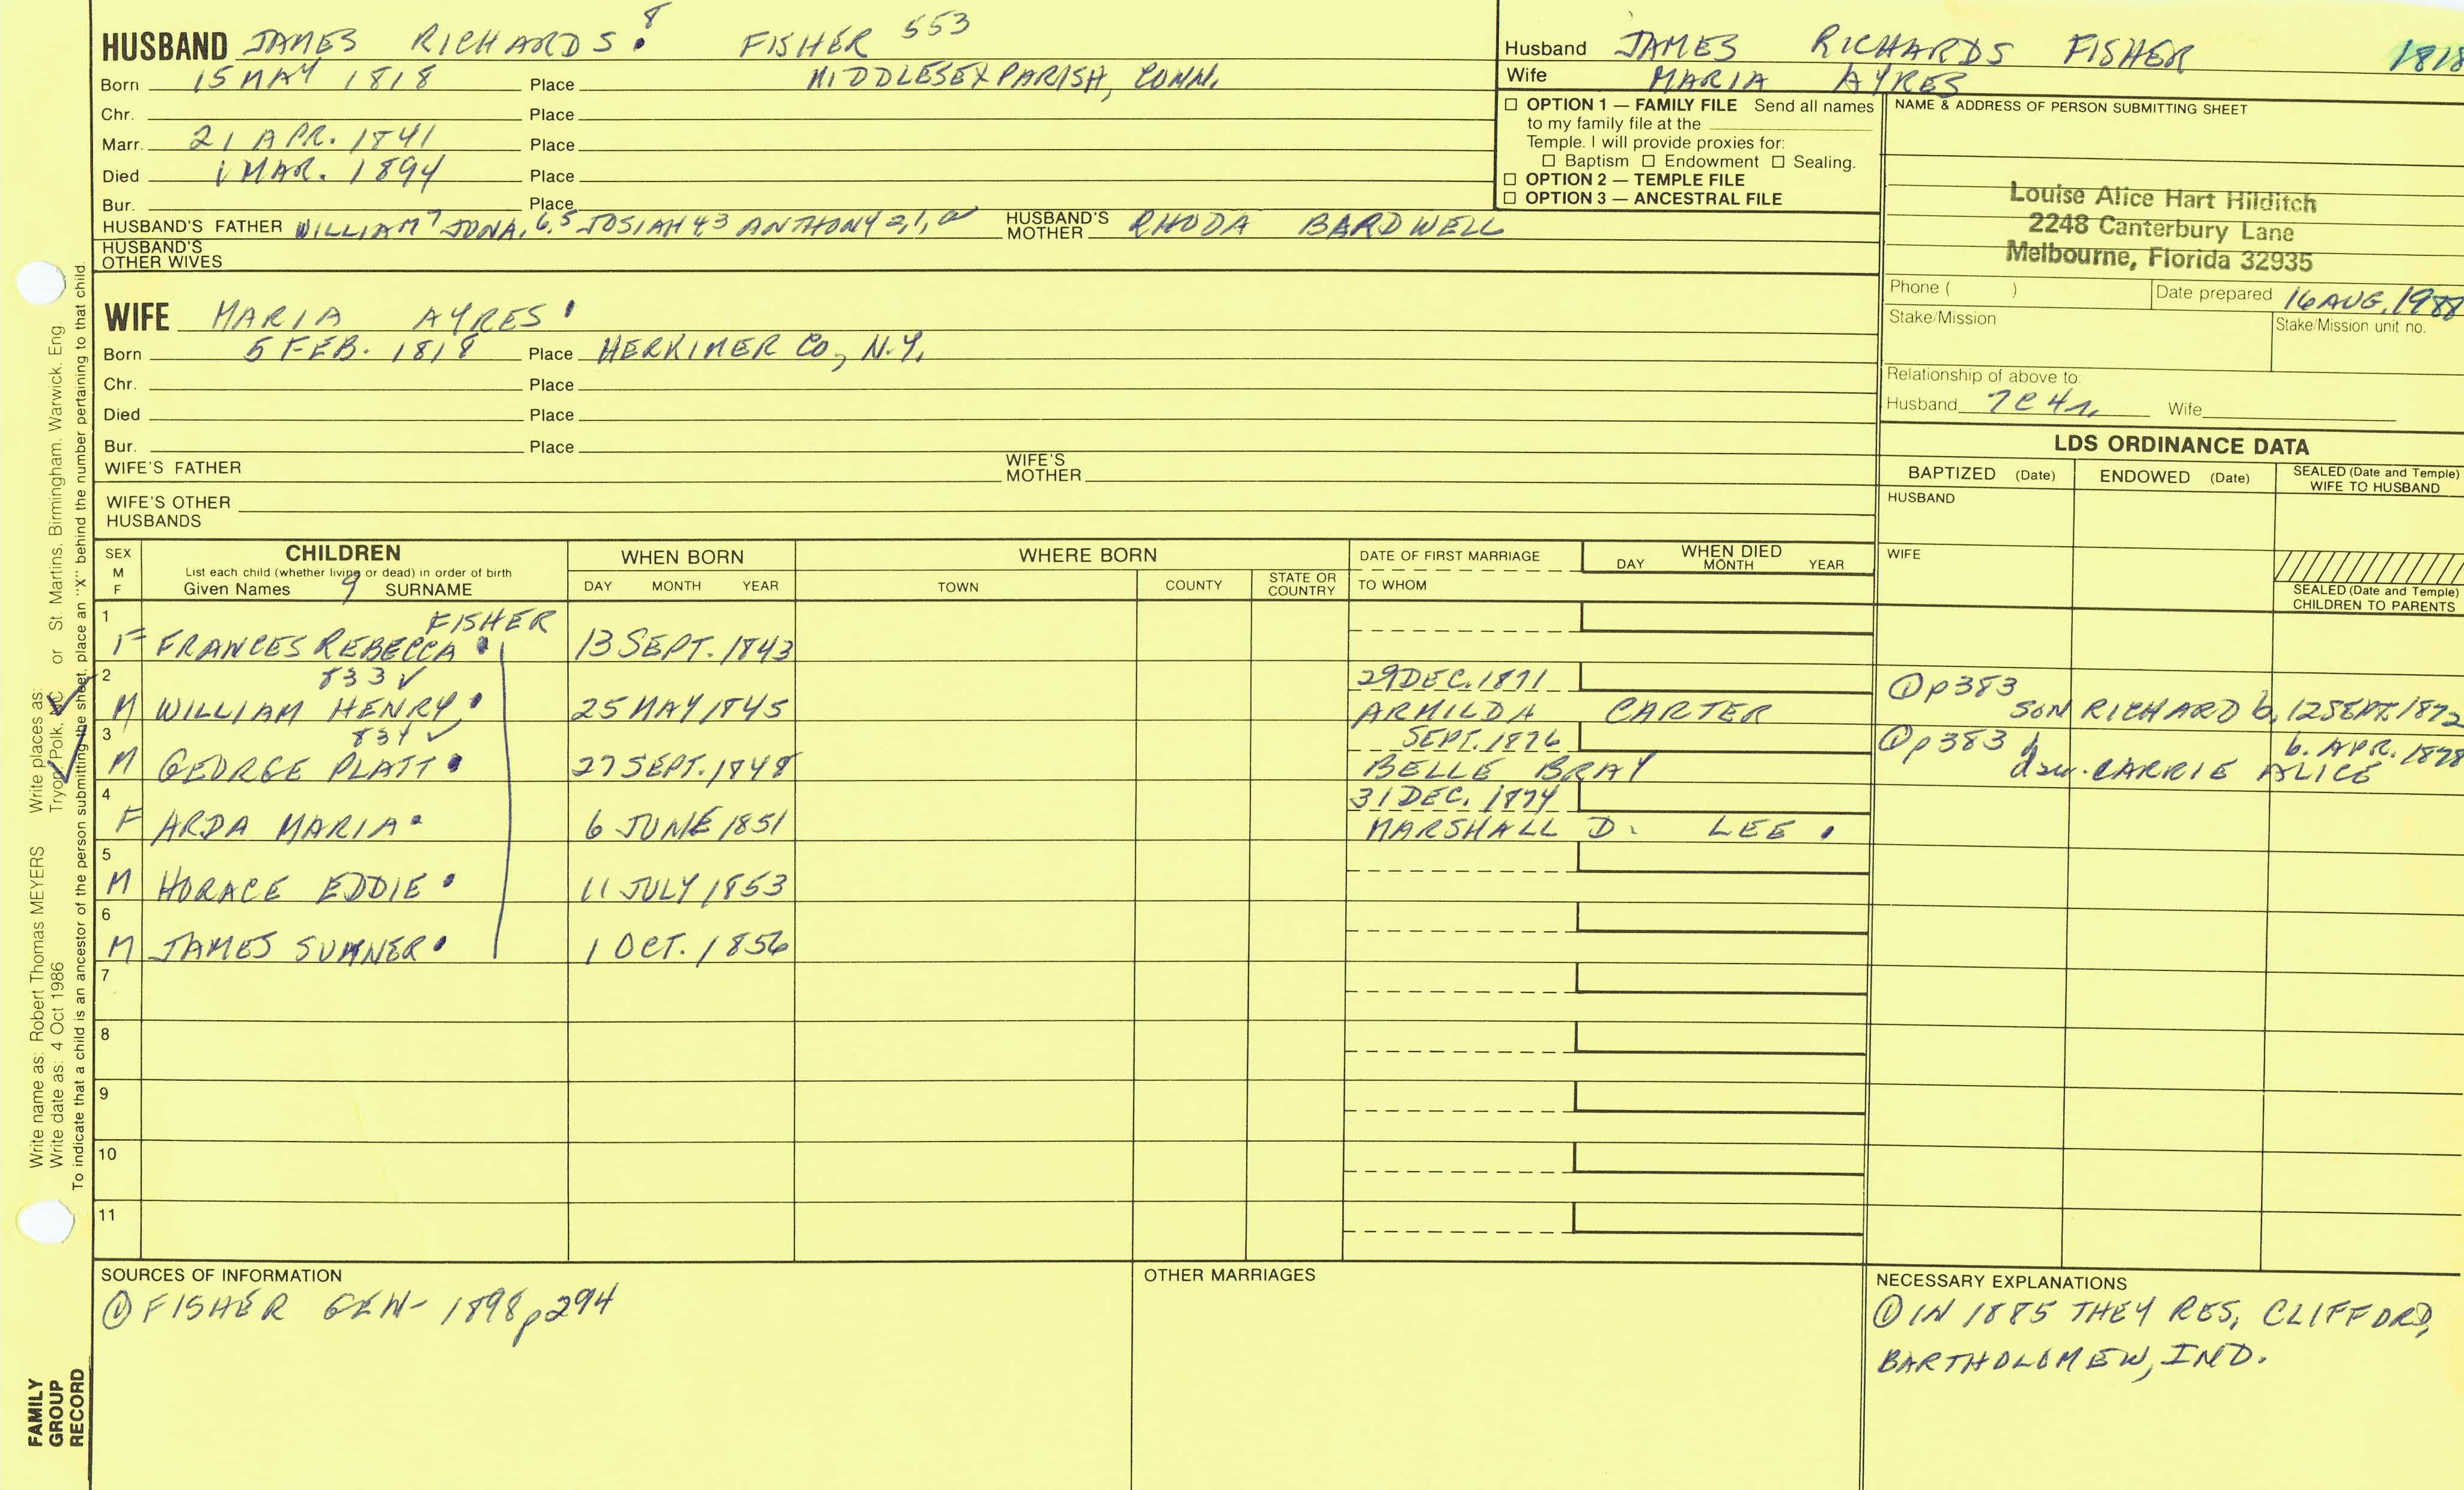 HUSBAND JAMES RICHARDS 8 FISHER 553
Born 15 MAY 1818 Place MIDDLESEX PARISH, CONN.
Chr. Place
Marr. 21 APR. 1841 Place
Died 1 MAR. 1894 Place
Bur. Place
HUSBAND'S FATHER WILLIAM 7 JONA. 6,5 JOSIAH 4,3 ANTHONY 2,1, HUSBAND'S MOTHER RHODA BARDWELL
HUSBAND'S OTHER WIVES
WIFE MARIA AYRES
Born 5 FEB. 1818 Place HERKIMER CO, N.Y.
Chr. Place
Died Place
Bur. Place
WIFE'S FATHER WIFE'S MOTHER
WIFE'S OTHER HUSBANDS
Husband JAMES RICHARDS FISHER 1818
Wife MARIA AYRES
☐ OPTION 1 — FAMILY FILE Send all names
to my family file at the
Temple. I will provide proxies for:
☐ Baptism ☐ Endowment ☐ Sealing.
☐ OPTION 2 — TEMPLE FILE
☐ OPTION 3 — ANCESTRAL FILE
NAME & ADDRESS OF PERSON SUBMITTING SHEET
Louise Alice Hart Hilditch
2248 Canterbury Lane
Melbourne, Florida 32935
Phone ( ) Date prepared 16 AUG, 1988
Stake/Mission Stake/Mission unit no.
Relationship of above to:
Husband 7C4r. Wife
LDS ORDINANCE DATA
BAPTIZED (Date) ENDOWED (Date) SEALED (Date and Temple) WIFE TO HUSBAND
HUSBAND
WIFE
SEALED (Date and Temple) CHILDREN TO PARENTS
SEX M F
CHILDREN
List each child (whether living or dead) in order of birth
Given Names 9 SURNAME
WHEN BORN DAY MONTH YEAR
WHERE BORN TOWN COUNTY STATE OR COUNTRY
DATE OF FIRST MARRIAGE
TO WHOM
WHEN DIED DAY MONTH YEAR
1 FISHER
F FRANCES REBECCA 13 SEPT. 1843
2 833 ✓ 29 DEC. 1871 ① p383
M WILLIAM HENRY 25 MAY 1845 ARMILDA CARTER SON RICHARD b. 12 SEPT. 1872
3 834 ✓ SEPT. 1876 ① p383 b. APR. 1878
M GEORGE PLATT 27 SEPT. 1848 BELLE BRAY dau. CARRIE ALICE
4 31 DEC. 1874
F ARDA MARIA 6 JUNE 1851 MARSHALL D. LEE
5
M HORACE EDDIE 11 JULY 1853
6
M JAMES SUMNER 1 OCT. 1856
7
8
9
10
11
SOURCES OF INFORMATION
① FISHER GEN- 1898 p294
OTHER MARRIAGES
NECESSARY EXPLANATIONS
① IN 1885 THEY RES, CLIFFORD,
BARTHOLOMEW, IND.
Write name as: Robert Thomas MEYERS Write places as:
Write date as: 4 Oct 1986 Tryon, Polk, NC or St. Martins, Birmingham, Warwick, Eng.
To indicate that a child is an ancestor of the person submitting the sheet, place an "X" behind the number pertaining to that child.
FAMILY
GROUP
RECORD